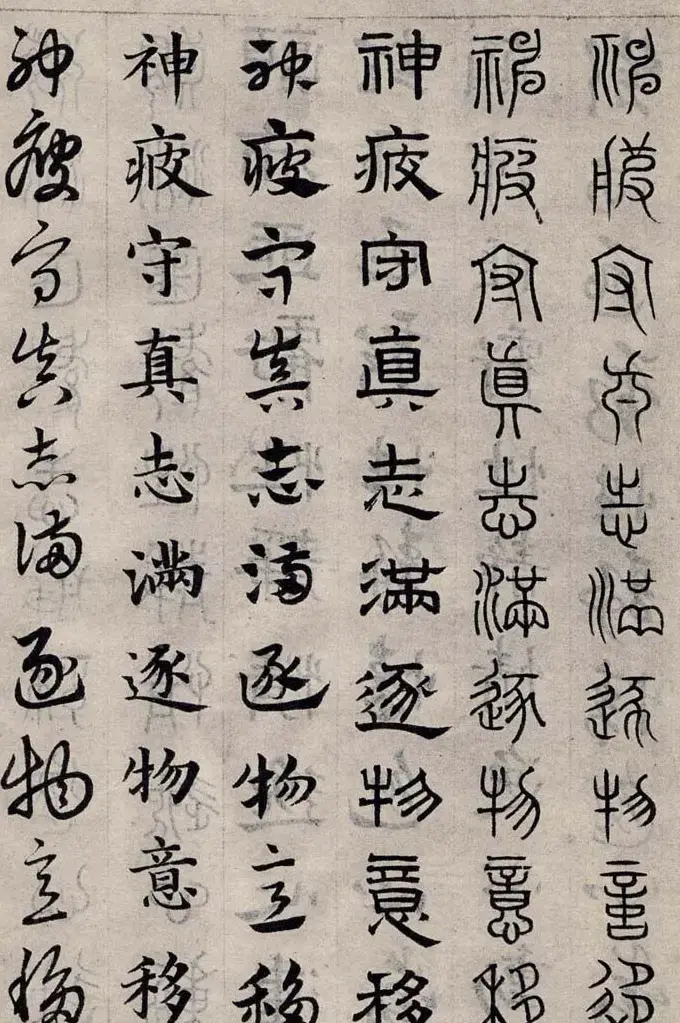 神疲守真志滿逐物意移
神疲守眞志滿逐物意移
神疲守眞志滿逐物意移
神疲守真志滿逐物意移
神疲守真志滿逐物意移
神疲守真志滿逐物意移